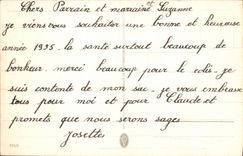 Chers Parrain et marraine et Suzanne
je viens vous souhaiter une bonne et heureuse
année 1935. la santé surtout beaucoup de
bonheur. merci beaucoup pour le colis. je
suis contente de mon sac. je vous embrasse
tous pour moi et pour Claude et
promets que nous serons sages
Josette